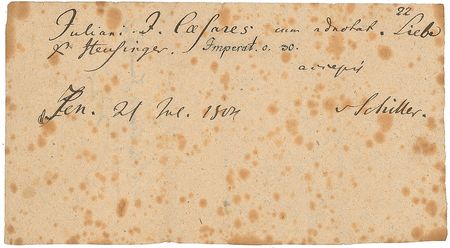 22
Juliani J. Cæsares cum adnotat. Liebe
& Heusinger. Imperat. o. 30.
accepi
Jen. 21 Jul. 1804
v Schiller.